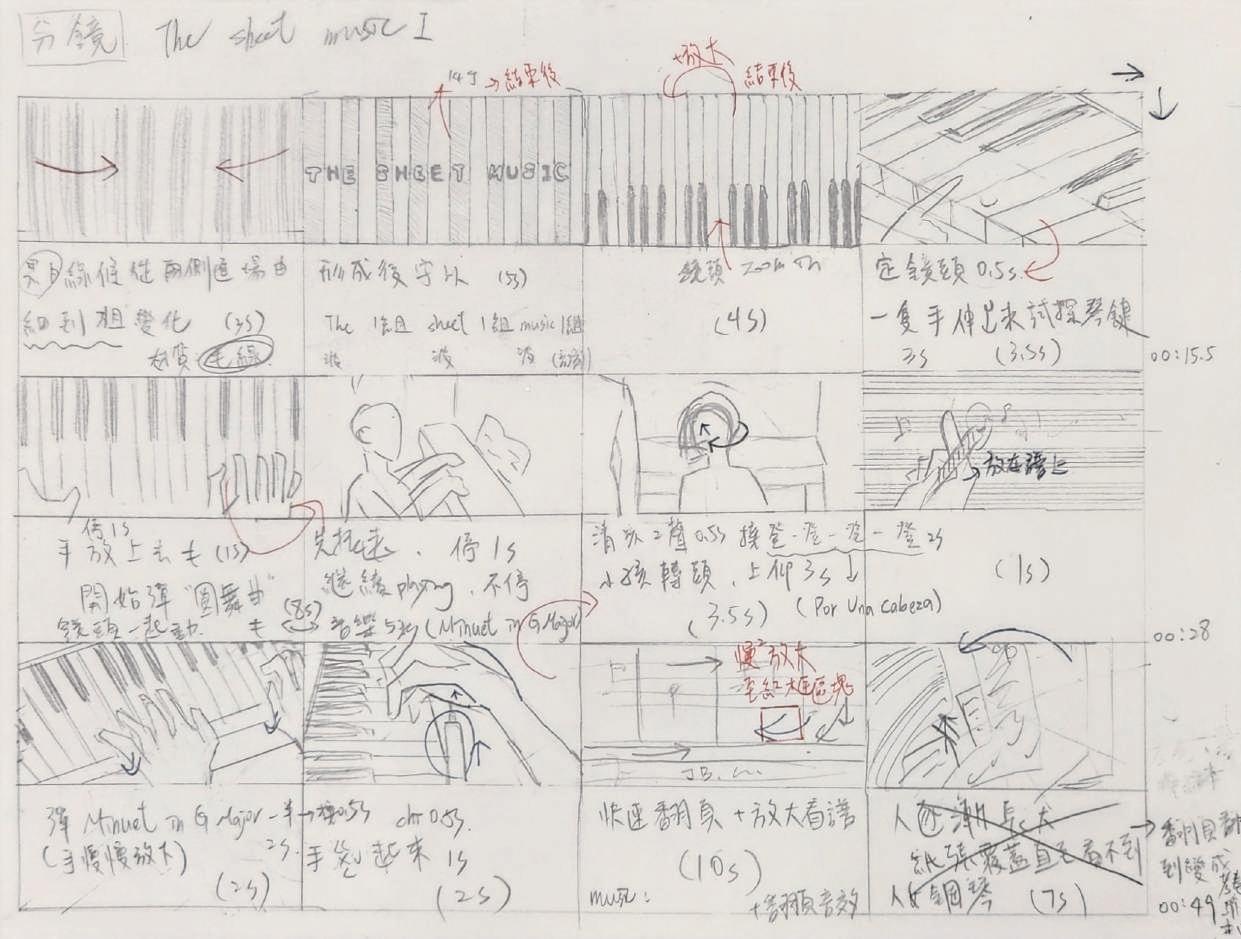 分鏡 The sheet music I
+放大
14字→結束後
結束後
THE SHEET MUSIC
線條從兩側進場由
細到粗變化 (3s)
材質 毛線
形成後字以 (5s)
The 1組 sheet 1組 music 1組
鏡頭 zoom in
(4s)
定鏡頭 0.5s
一隻手伸出來試探琴鍵
2s (3.5s)
00:15.5
放在譜上
停1s
手放上去 (1s)
開始彈“圓舞曲”
鏡頭一起動 (8s)
停1s
繼續playing,不停
音樂 (Minuet in G Major)
2聲0.5s 接登-登-登-登 2s
小孩轉頭,上仰 3s
(3.5s) (Por Una Cabeza)
(1s)
00:28
慢慢放大
至紅框區塊
彈 Minuet in G Major
2s
(手慢慢放大)
(2s)
0.5s
手 起來 1s
(2s)
快速翻頁+放大看譜
(10s)
music:
+翻頁音效
人逐漸長大
紙張覆蓋直到看不到
人&鋼琴 (7s)
→翻頁
到變成
00:49